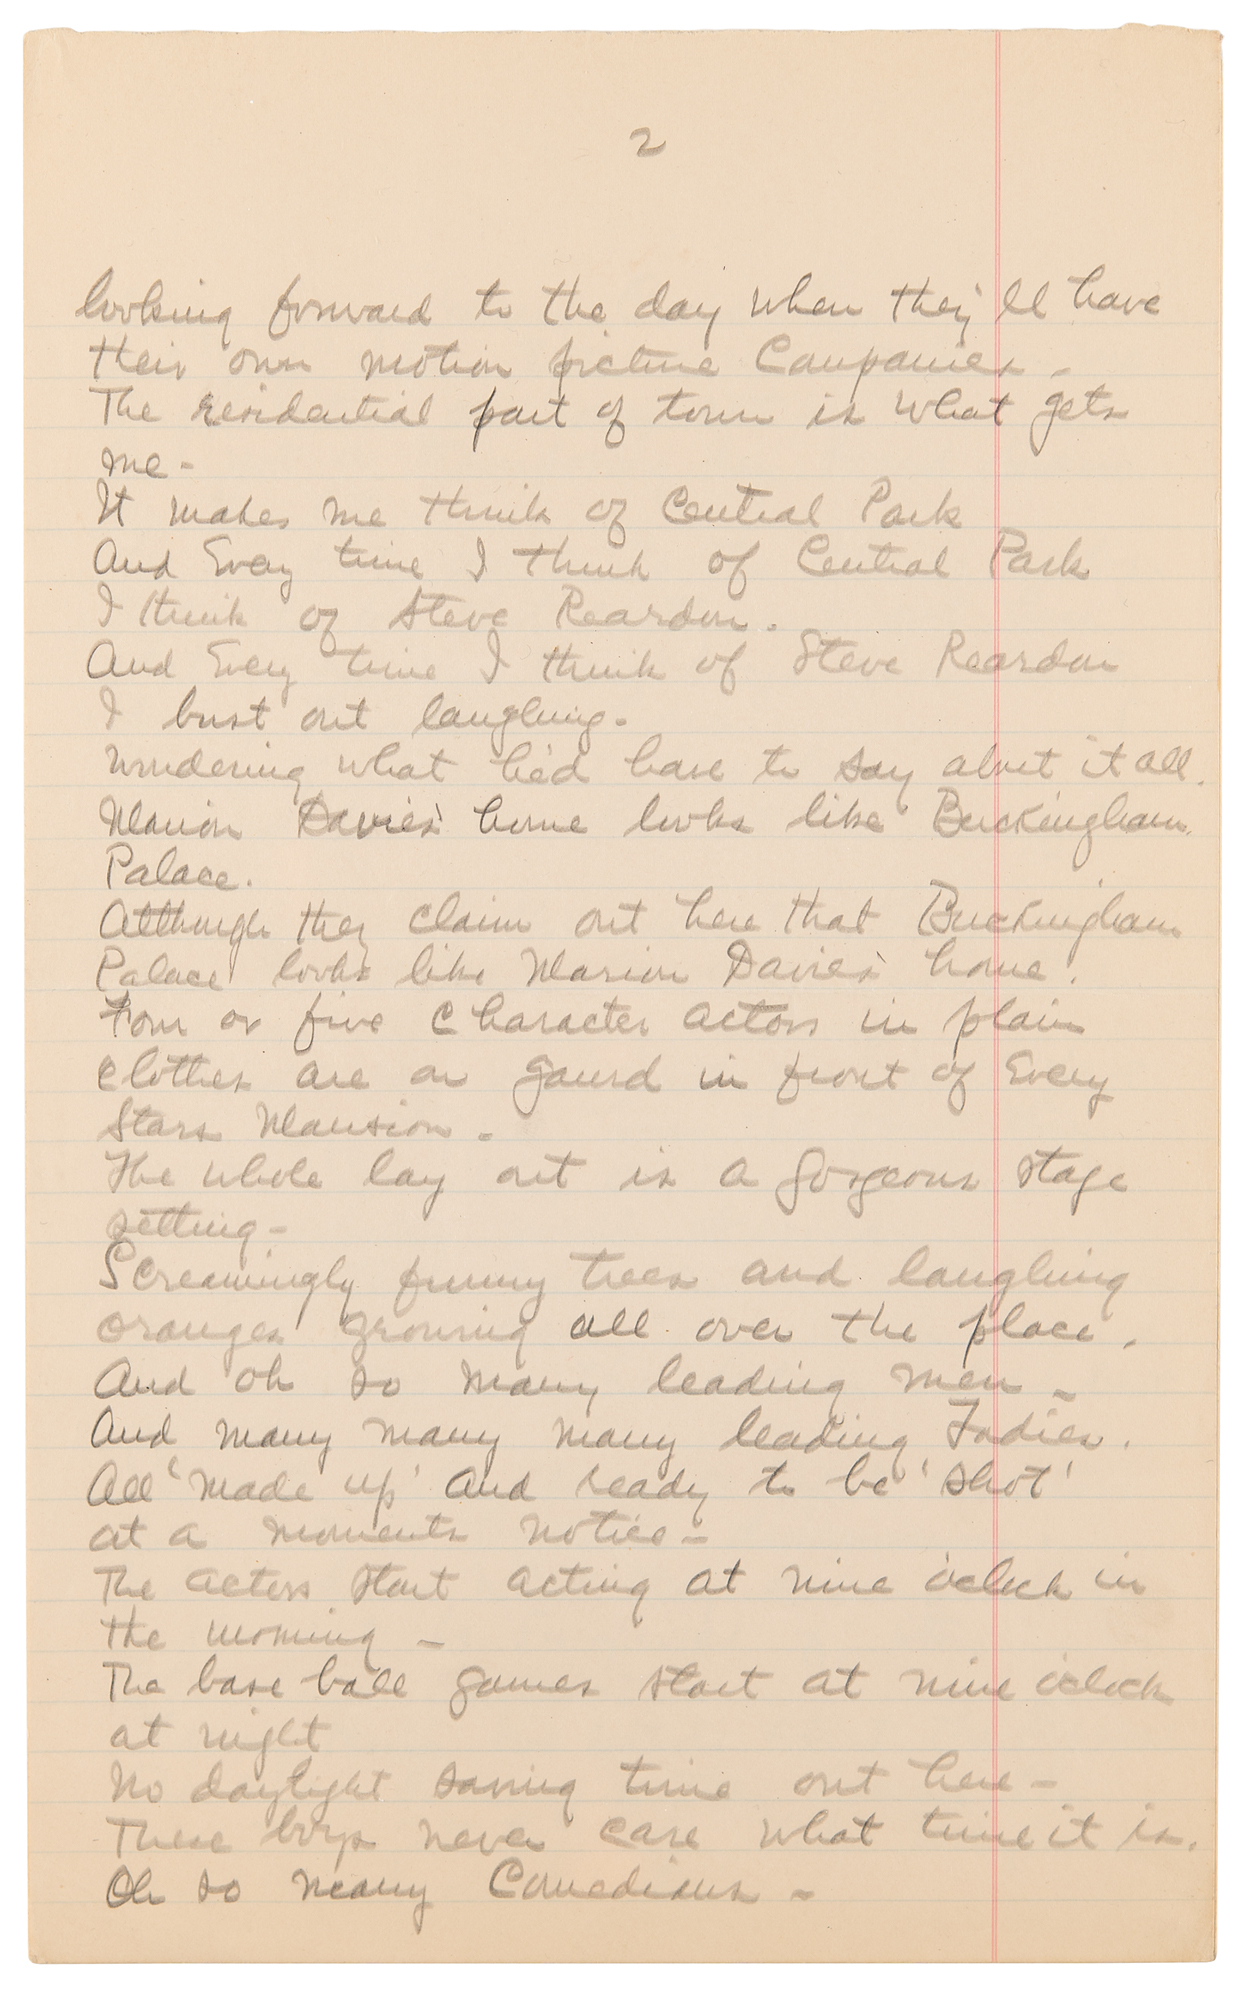 2
looking forward to the day when they'll have
their own motion picture Companies -
The residential part of town is what gets
me -
It makes me think of Central Park
And Every time I think of Central Park
I think of Steve Reardon.
And Every time I think of Steve Reardon
I bust out laughing -
Wondering what he'd have to say about it all.
Marion Davies' home looks like Buckingham
Palace.
Although they claim out here that Buckingham
Palace looks like Marion Davies' home.
Four or five Character actors in plain
clothes are on gaurd in front of Every
Stars Mansion -
The whole lay out is a gorgeous stage
setting -
Screamingly funny trees and laughing
oranges growing all over the place.
And oh so many leading men -
And many many many leading Ladies.
All 'made up' and ready to be 'shot'
at a moments notice -
The actors start acting at nine o'clock in
the morning -
The base ball games start at nine o'clock
at night
No daylight saving time out here -
These boys never care what time it is.
Oh so many Comedians -